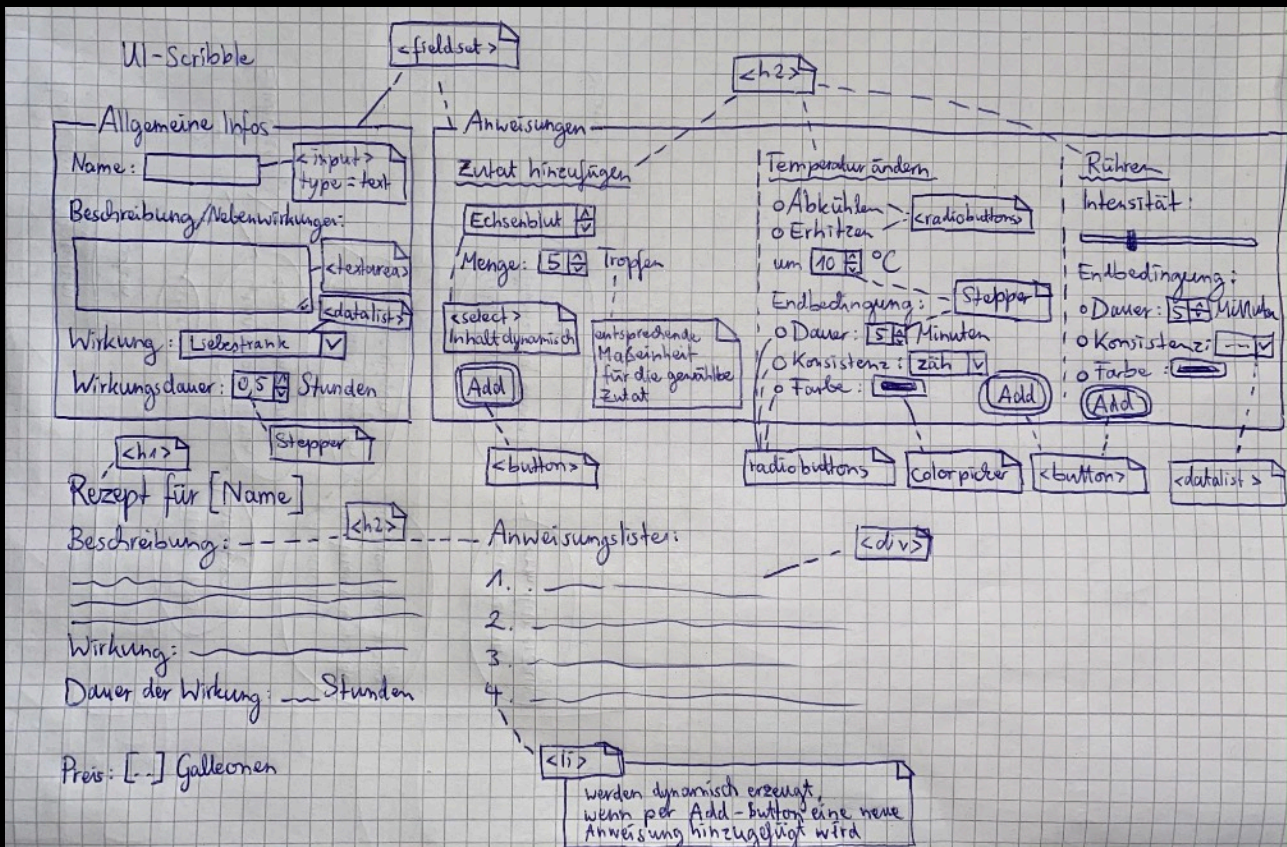 UI-Scribble
<fieldset>
<h2>
Allgemeine Infos
Name:
<input>
type = text
Beschreibung/Nebenwirkungen:
<textarea>
<datalist>
Wirkung: Liebestrank
Wirkungsdauer: 0,5 Stunden
Stepper
Anweisungen
Zutat hinzufügen
Echsenblut
Menge: 5 Tropfen
<select>
Inhalt dynamisch
entsprechende
Maßeinheit
für die gewählte
Zutat
Add
<button>
Temperatur ändern
o Abkühlen
o Erhitzen
<radiobuttons>
um 10 °C
Stepper
Endbedingung:
o Dauer: 5 Minuten
o Konsistenz: zäh
o Farbe:
Add
radiobuttons
Colorpicker
<button>
Rühren
Intensität:
Endbedingung:
o Dauer: 5 Minuten
o Konsistenz: --
o Farbe:
Add
<datalist>
<h1>
Rezept für [Name]
<h2>
Beschreibung:
Wirkung:
Dauer der Wirkung: __ Stunden
Preis: [--] Galleonen
Anweisungsliste:
<div>
1.
2.
3.
4.
<li>
werden dynamisch erzeugt,
wenn per Add-button eine neue
Anweisung hinzugefügt wird